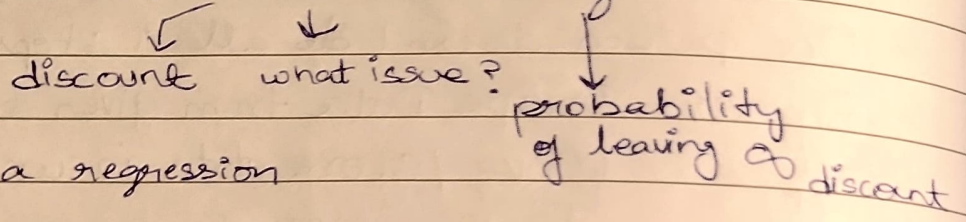 discount what issue?
probability
of leaving ∝ discant
a regression